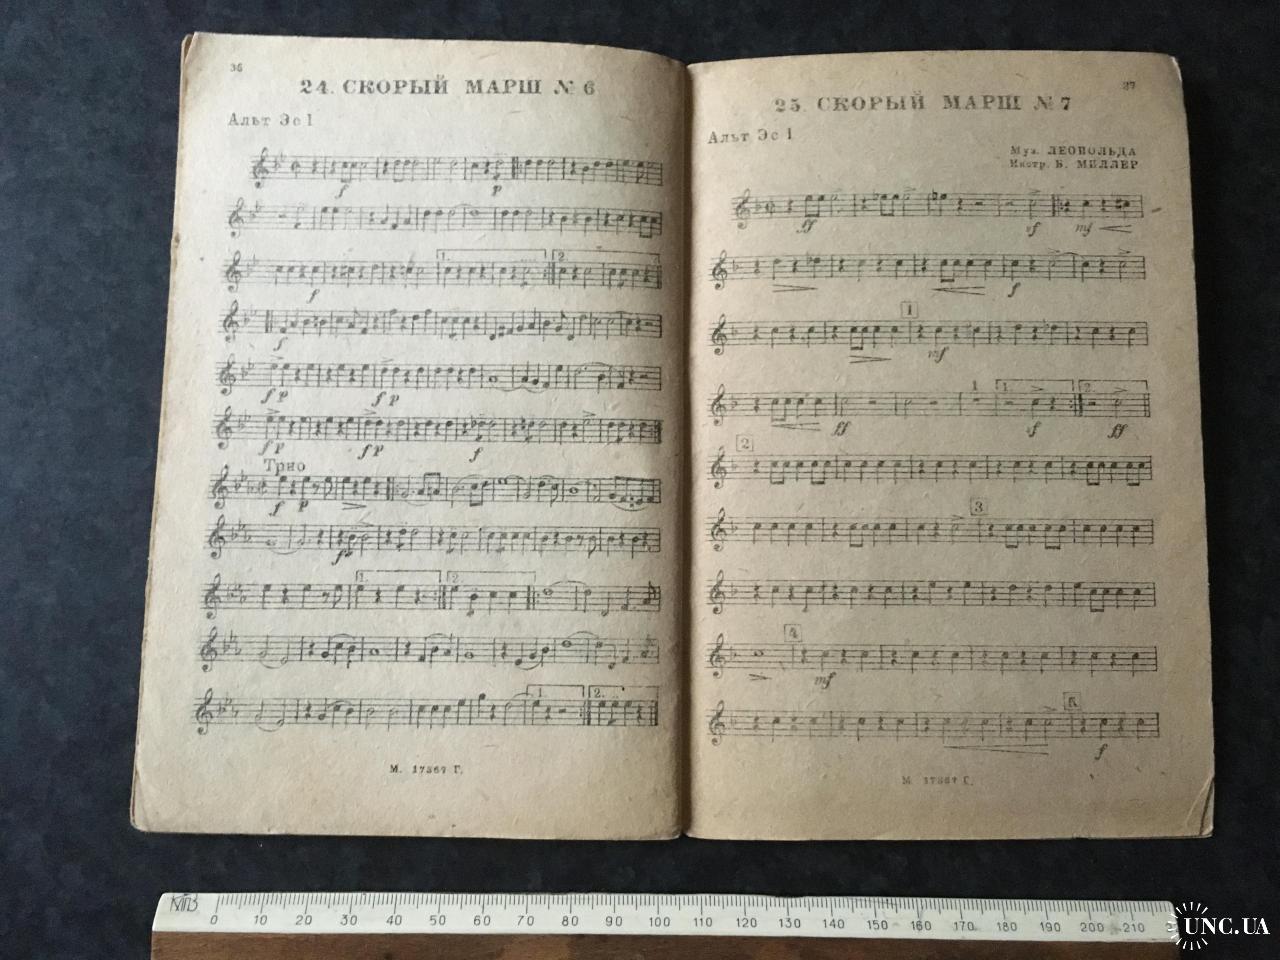 36
24. СКОРЫЙ МАРШ № 6
Альт Эс 1
f
p
1.
2.
f
f
f p
f p
f p
f p
f
Трио
f
p
fp
1.
2.
1.
2.
М. 17367 Г.
37
25. СКОРЫЙ МАРШ № 7
Альт Эс 1
Муз. ЛЕОПОЛЬДА
Инстр. Б. МИЛЛЕР
ff
sf
mf
f
1
mf
1
1.
2.
ff
sf
ff
2
3
4
mf
5
f
М. 17367 Г.
0 10 20 30 40 50 60 70 80 90 100 110 120 130 140 150 160 170 180 190 200 210
UNC.UA